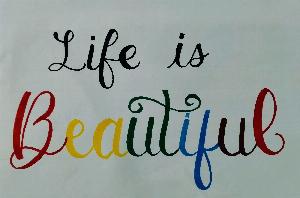 Life is
Beautiful